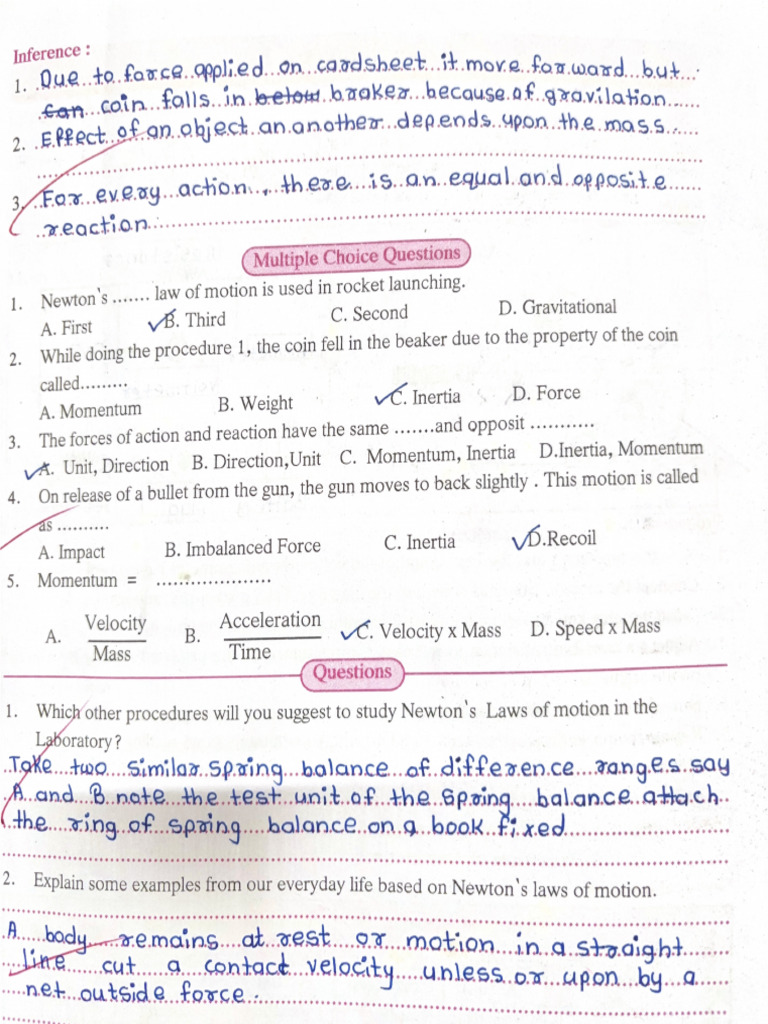 Inference :
1. Due to force applied on cardsheet it move forward but
can coin falls in below braker because of gravilation
2. Effect of an object an another depends upon the mass
3. For every action, there is an equal and opposite
reaction
Multiple Choice Questions
1. Newton's ....... law of motion is used in rocket launching.
A. First B. Third C. Second D. Gravitational
2. While doing the procedure 1, the coin fell in the beaker due to the property of the coin
called.........
A. Momentum B. Weight C. Inertia D. Force
3. The forces of action and reaction have the same .......and opposit ...........
A. Unit, Direction B. Direction,Unit C. Momentum, Inertia D.Inertia, Momentum
4. On release of a bullet from the gun, the gun moves to back slightly . This motion is called
as ..........
A. Impact B. Imbalanced Force C. Inertia D.Recoil
5. Momentum = .....................
A. Velocity B. Acceleration C. Velocity x Mass D. Speed x Mass
Mass Time
Questions
1. Which other procedures will you suggest to study Newton's Laws of motion in the
Laboratory?
Take two similar spring balance of difference ranges say
A and B note the test unit of the spring balance attach
the ring of spring balance on a book fixed
2. Explain some examples from our everyday life based on Newton's laws of motion.
A body remains at rest or motion in a straight
line cut a contact velocity unless or upon by a
net outside force.